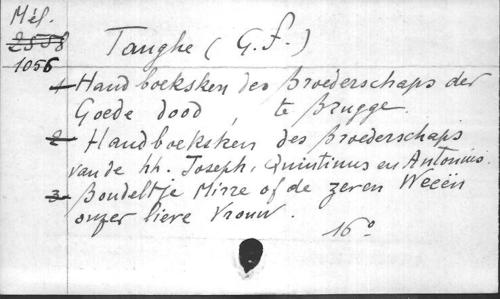 Mél.
2558
1056
Tanghe (G. f.)
1 Handboeksken des Broederschaps der
Goede dood, te Brugge.
2 Handboeksken des Broederschaps
van de hh. Joseph, Quintinus en Antonius.
3 Bondeltje Mirre of de zeven Weeën
onzer lieve Vrouw.
16°